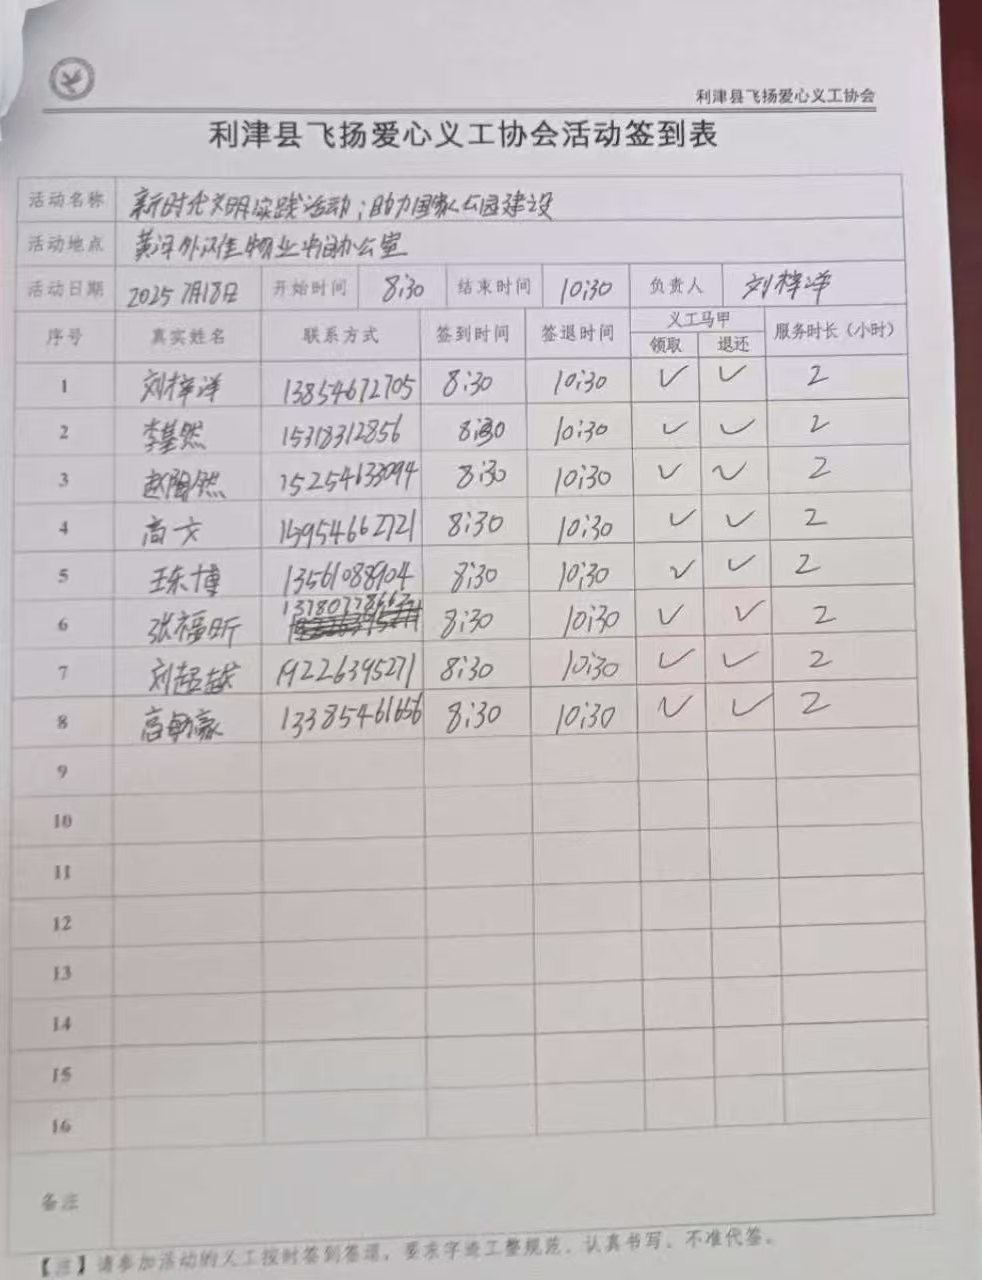 利津县飞扬爱心义工协会
利津县飞扬爱心义工协会活动签到表
活动名称 新时代文明实践活动;助力国家公园建设
活动地点 黄河外滩 物业 办公室
活动日期 2025 7月18日 开始时间 8:30 结束时间 10:30 负责人 刘梓洋
序号 真实姓名 联系方式 签到时间 签退时间 义工马甲 服务时长(小时)
领取 退还
1 刘梓洋 13854672705 8:30 10:30 ✓ ✓ 2
2 李基然 15318312856 8:30 10:30 ✓ ✓ 2
3 赵陶然 15254633094 8:30 10:30 ✓ ✓ 2
4 高文 13954662721 8:30 10:30 ✓ ✓ 2
5 王东博 13561088904 8:30 10:30 ✓ ✓ 2
6 张福昕 8:30 10:30 ✓ ✓ 2
7 刘超越 19226395271 8:30 10:30 ✓ ✓ 2
8 高敏豪 8:30 10:30 ✓ ✓ 2
9
10
11
12
13
14
15
16
备注
【注】请参加活动的义工按时签到签退，要求字迹工整规范、认真书写、不准代签。